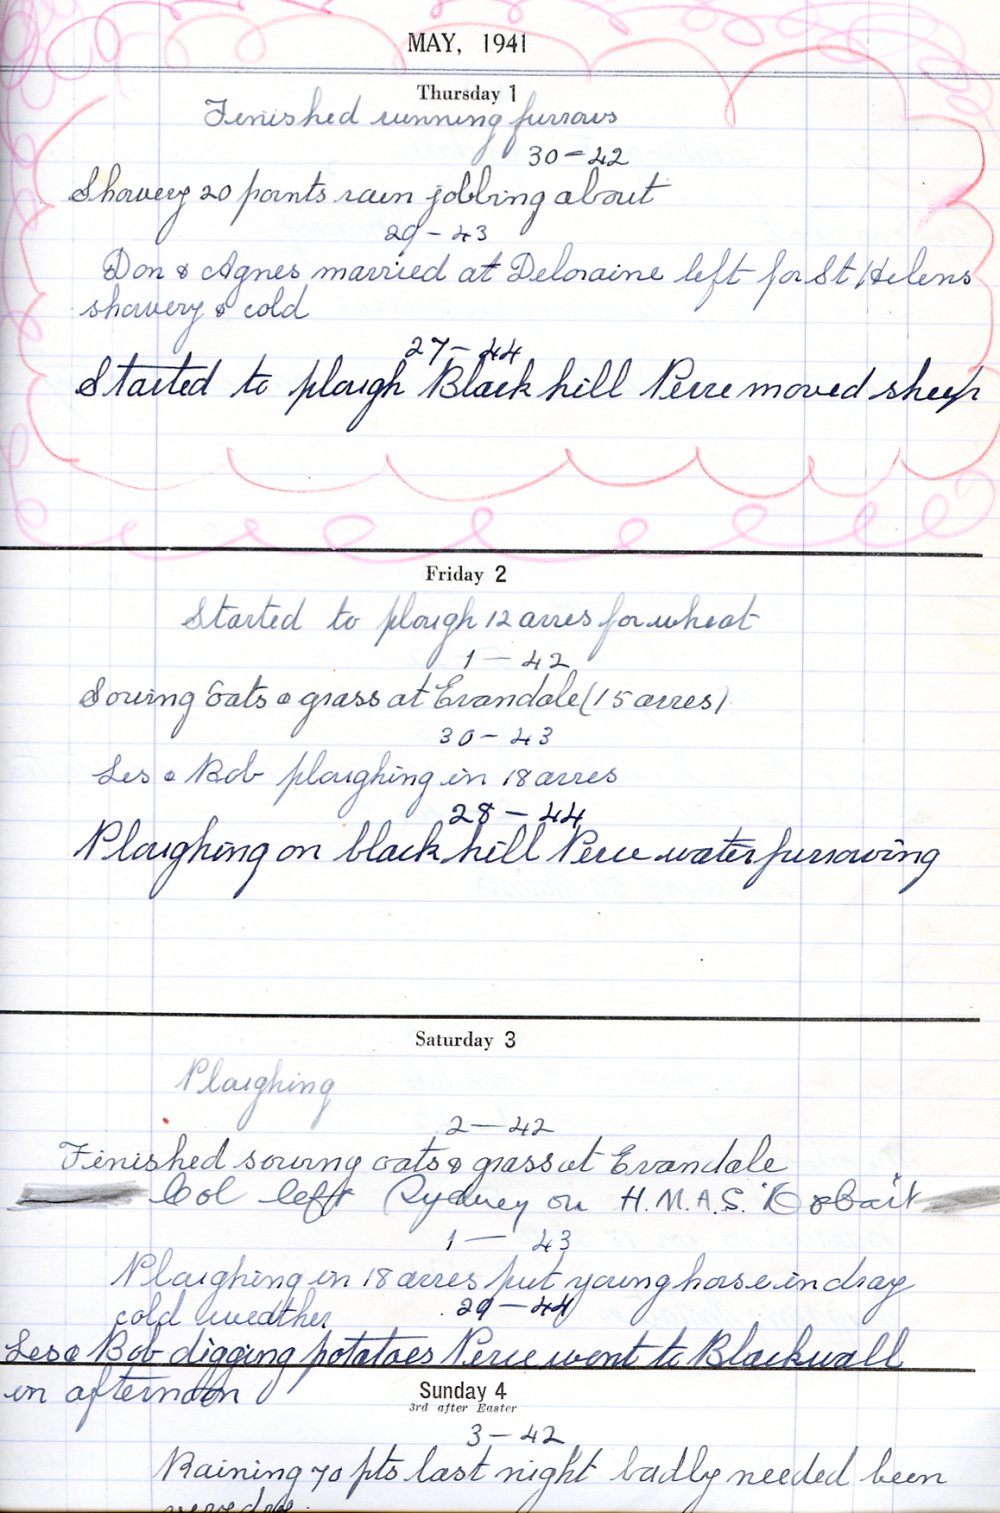 MAY, 1941
Thursday 1
Finished running furrows
30 – 42
Showery 20 points rain jobbing about
29 – 43
Don & Agnes married at Deloraine left for St Helens
showery & cold
27 – 44
Started to plough Black hill Perce moved sheep
Friday 2
Started to plough 12 acres for wheat
1 – 42
Sowing Oats & grass at Evandale (15 acres)
30 – 43
Les & Bob ploughing in 18 acres
28 – 44
Ploughing on black hill Perce water furrowing
Saturday 3
Ploughing
2 – 42
Finished sowing oats & grass at Evandale
Col left Sydney on H.M.A.S.
1 – 43
Ploughing in 18 acres put young horse in dray
cold weather
29 – 44
Les & Bob digging potatoes Perce went to Blackwall
in afternoon
Sunday 4
3rd after Easter
3 – 42
Raining 70 pts last night badly needed been
very dry.